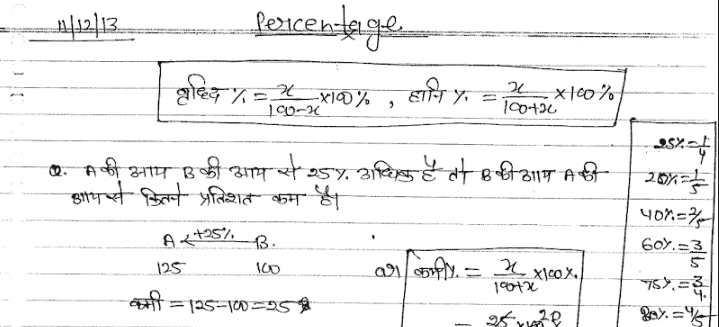 11/12/13 Percentage
वृध्दि % = x/100-x ×100% , हानि %. = x/100+x ×100%
Q. A की आय B की आय से 25%. अधिक है तो B की आय A की
आय से कितने प्रतिशत कम है।
A <+25%. B.
125 100
कमी = 125-100=25
या कमी%. = x/100+x ×100%.
= 25
25%.=1/4
20%=1/5
40%.=2/5
60%.=3/5
75%.=3/4.
80%.=4/5